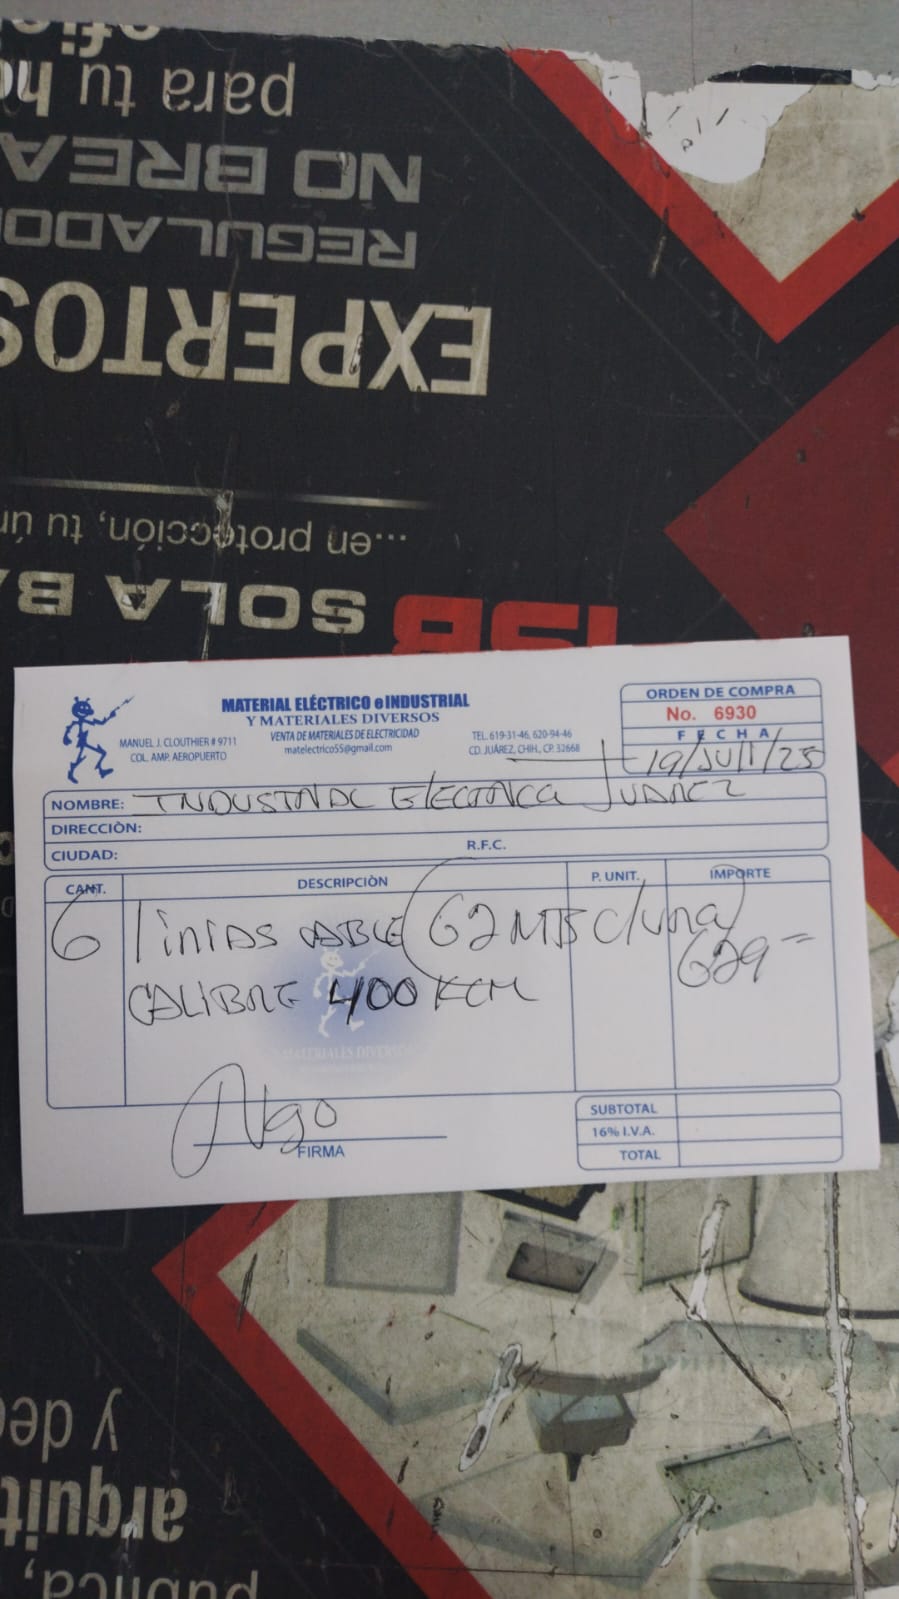 para tu h
NO BREA
REGULADO
EXPERTOS
...en protección, tu ún
ISB SOLA BA
MATERIAL ELÉCTRICO e INDUSTRIAL
Y MATERIALES DIVERSOS
VENTA DE MATERIALES DE ELECTRICIDAD
matelectrico55@gmail.com
MANUEL J. CLOUTHIER # 9711
COL. AMP. AEROPUERTO
TEL. 619-31-46, 620-94-46
CD. JUÁREZ, CHIH., C.P. 32668
ORDEN DE COMPRA
No. 6930
FECHA
19/JUL/25
NOMBRE: INDUSTRIAL ELECTRICA JUAREZ
DIRECCIÒN:
CIUDAD: R.F.C.
CANT. DESCRIPCIÒN P. UNIT. IMPORTE
6 liniAS CABLE (62 MTS c/una) 629=
CALIBRE 400 KCM
MATERIALES DIVERSOS
FIRMA
SUBTOTAL
16% I.V.A.
TOTAL
y dec
arquit
pública,